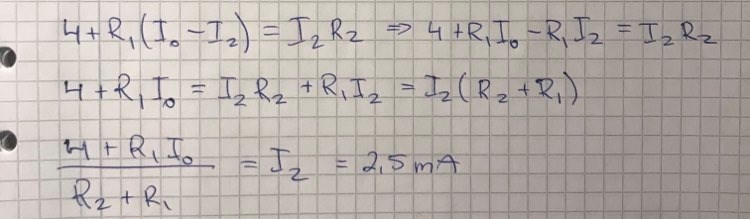 4 + R₁(I₀ - I₂) = I₂R₂ ⇒ 4 + R₁I₀ - R₁I₂ = I₂R₂
4 + R₁I₀ = I₂R₂ + R₁I₂ = I₂(R₂ + R₁)
(4 + R₁I₀)/(R₂ + R₁) = I₂ = 2,5 mA